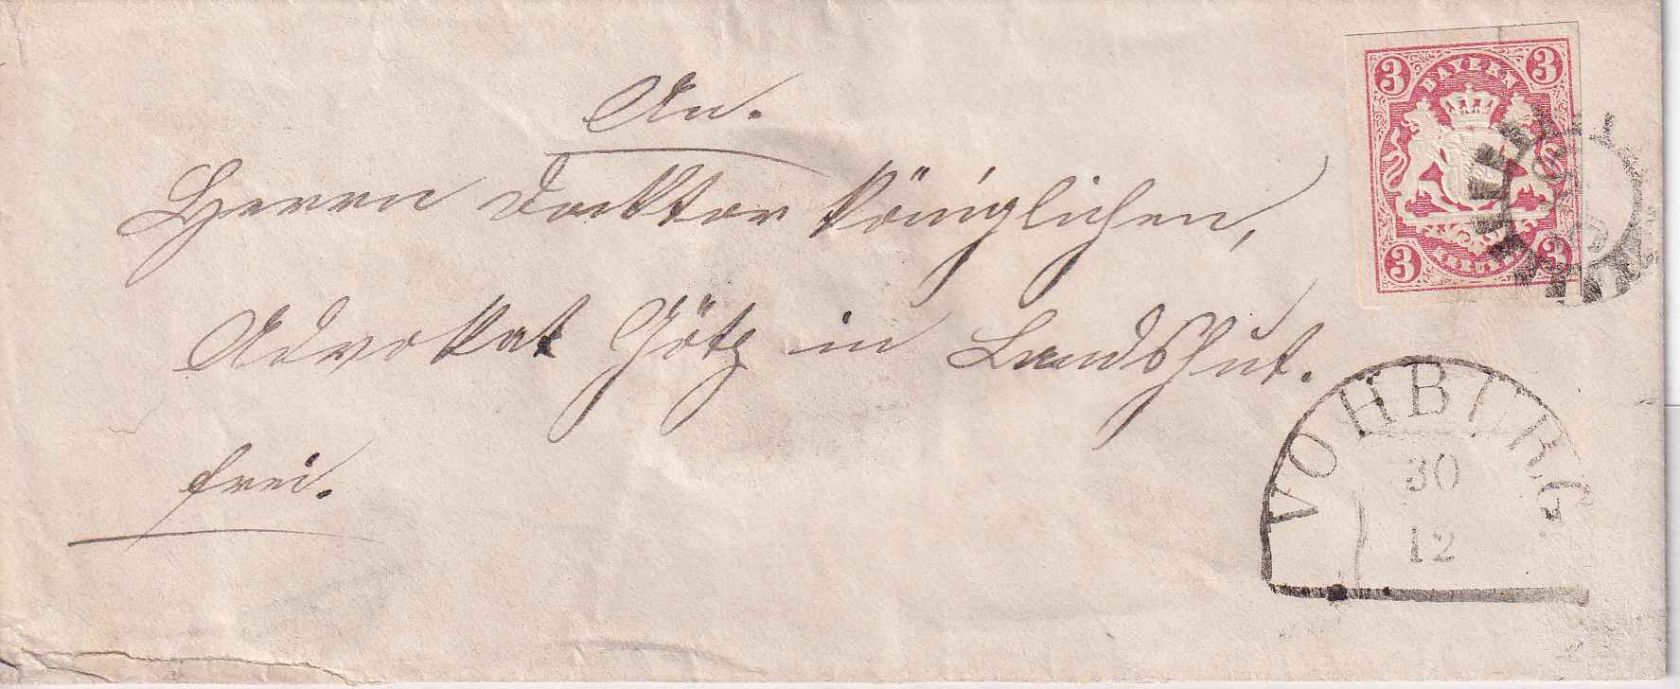 An.
Herrn Docktor Königlichen,
Advokat Götz in Landshut.
frei.
3 BAYERN 3
3 KREUZER 3
VOHBURG
30
12